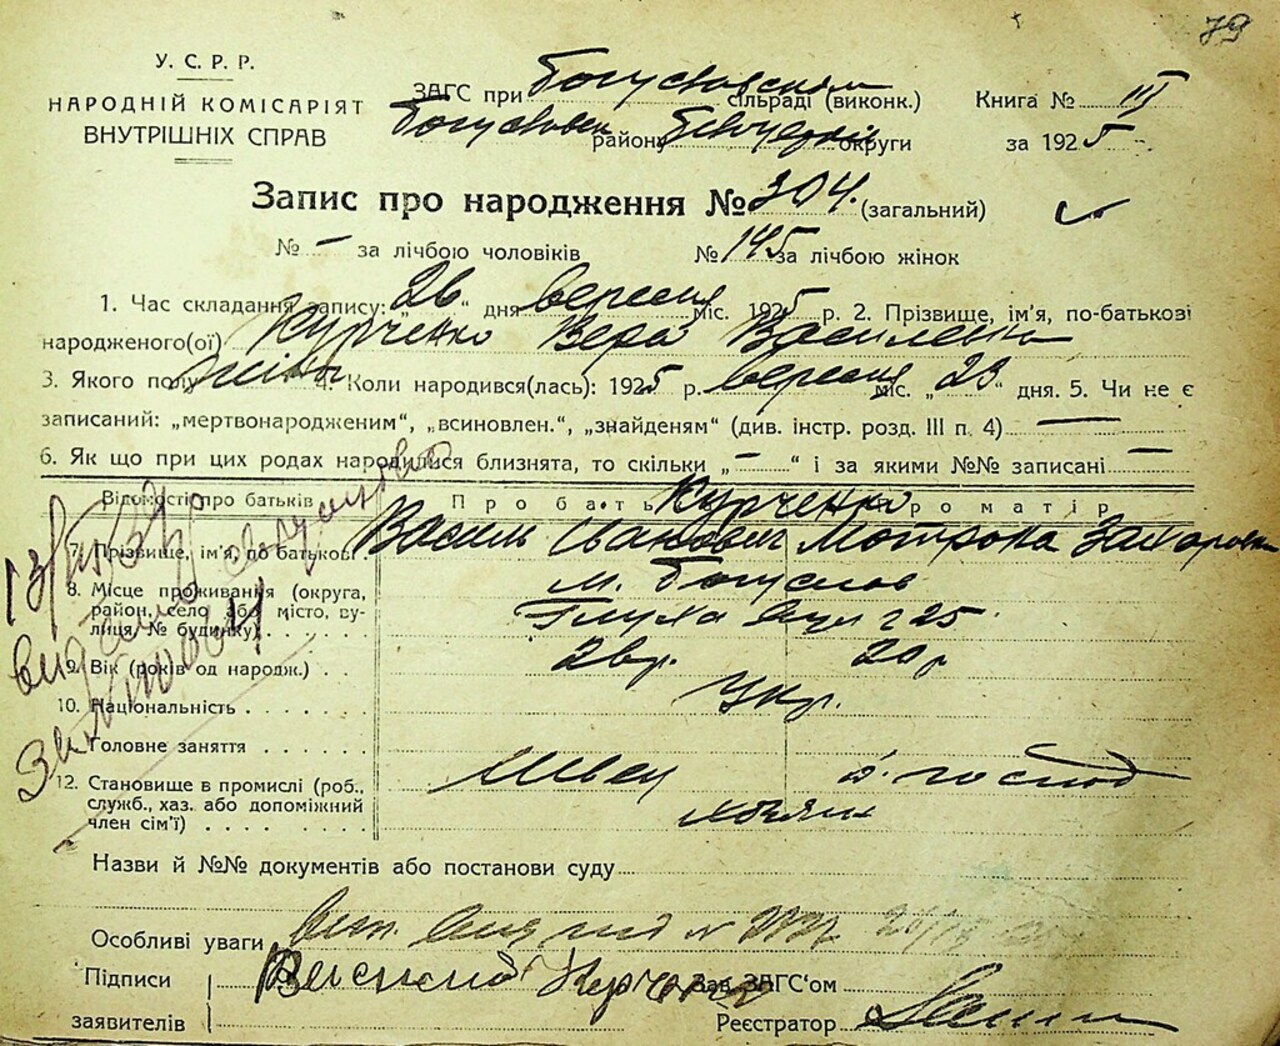 79
У. С. Р. Р.
НАРОДНІЙ КОМІСАРІЯТ
ВНУТРІШНІХ СПРАВ
ЗАГС при Богуславськім сільраді (виконк.)
Богуславськ району округи
Книга № III
за 1925
Запис про народження № 304. (загальний)
№ – за лічбою чоловіків № 145 за лічбою жінок
1. Час складання запису: „26“ дня вересня міс. 1925 р. 2. Прізвище, ім'я, по-батькові
народженого(ої) Курченко Вера Василевна
3. Якого полу жіноч 4. Коли народився(лась): 1925 р. вересня міс. „23“ дня. 5. Чи не є
записаний: „мертвонародженим“, „всиновлен.“, „знайденям“ (див. інстр. розд. III п. 4) —
6. Як що при цих родах народилися близнята, то скільки „–“ і за якими №№ записані —
Відомості про батьків Про батька Про матір
Курченко
7. Прізвище, ім'я, по батькові Василь Іванович Мотрона Захаровн
8. Місце проживання (округа, м. Богуслав
район, село або місто, ву-
лиця, № будинку) Глуха вул 25
9. Вік (років од народж.) 26р. 20р
10. Національність Укр.
Головне заняття
Швец д. господ
12. Становище в промислі (роб.,
служб., хаз. або допоміжний хозяин
член сім'ї)
Назви й №№ документів або постанови суду
Особливі уваги
Підписи
заявителів Курченко
Зав. ЗАГС'ом
Реєстратор